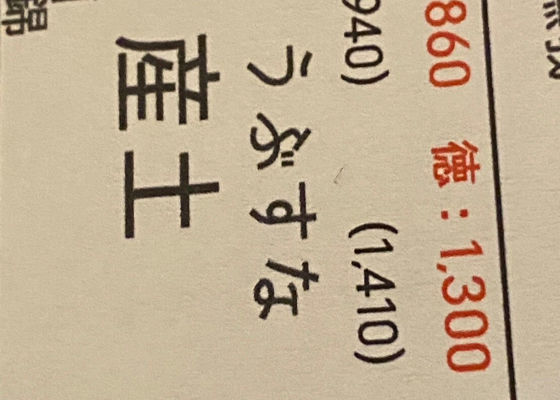 860 徳：1,300
940) (1,410)
うぶすな
産土